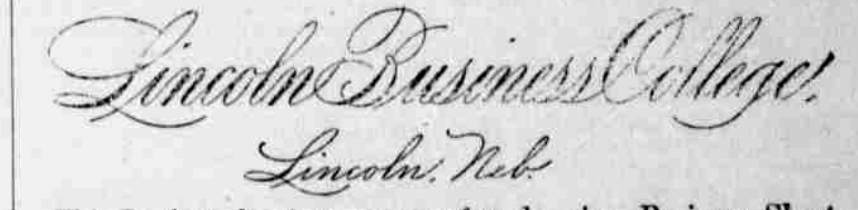 Lincoln Business College.
Lincoln, Neb.